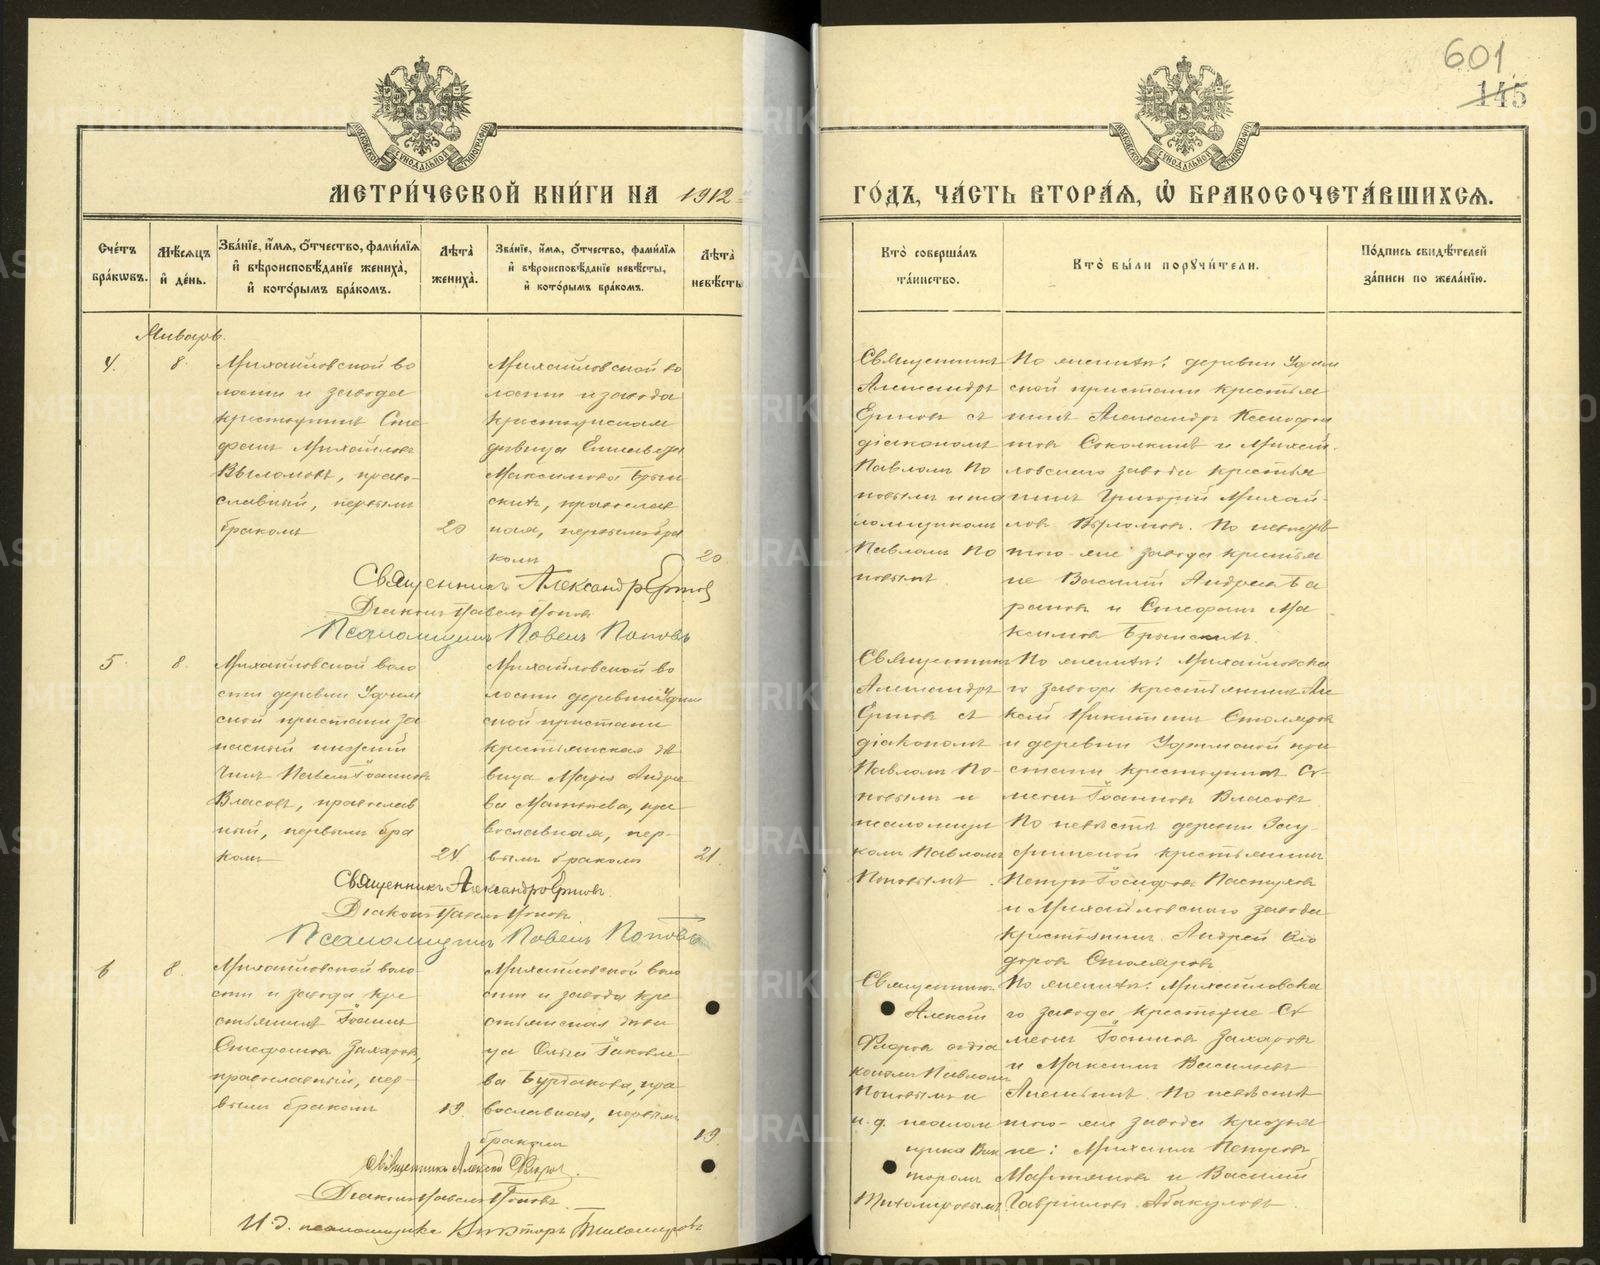 601
145
МЕТРИ́ЧЕСКОЙ КНИ́ГИ НА 1912
ГО́ДЪ, ЧА́СТЬ ВТОРА́Я, Ѡ҆ БРАКОСОЧЕТА́ВШИХСЯ.
Сче́тъ бра́ковъ.
Мѣ́сяцъ и҆ де́нь.
Зва́нїе, и҆́мя, ѻ҆́тчество, фами́лїя
и҆ вѣроисповѣ́данїе жениха̀,
и҆ кото́рымъ бра́комъ.
Лѣ́та̀ жениха̀.
Зва́нїе, и҆́мя, ѻ҆́тчество, фами́лїя
и҆ вѣроисповѣ́данїе невѣ́сты,
и҆ кото́рымъ бра́комъ.
Лѣ́та̀ невѣ́сты
Кто̀ соверша́лъ
та́инство.
Кто̀ бы́ли порꙋчи́тели.
По́дпись свидѣ́телей
за́писи по жела́нїю.
Январь.
4.
8.
Михайловской во
лости и завода
крестьянинъ Сте
фанъ Михайловъ
Выломовъ, право-
славный, первымъ
бракомъ
20
Михайловской во
лости и завода
крестьянская
дѣвица Елисавета
Максимова Брын
скихъ, православ
ная, первымъ бра
комъ
20
Священникъ
Александръ
Ерновъ съ
діакономъ
Павломъ По
повымъ и пса
ломщикомъ
Павломъ По
повымъ.
По женихѣ: деревни Уфим
ской пристани крестья
нинъ Александръ Ксенофон
товъ Соколкинъ и Михай-
ловскаго завода крестья
нинъ Григорій Михай-
ловъ Выломовъ. По невѣстѣ
того-же завода крестья
не Василій Андреевъ Ба
рановъ и Стефанъ Ма
ксимовъ Брынскихъ.
Священникъ Александръ Ерновъ
Діаконъ Павелъ Поповъ
Псаломщикъ Павелъ Поповъ
5
8.
Михайловской воло
сти деревни Уфим
ской пристани за
пасный нижній
чинъ Павелъ Іоанновъ
Власовъ, православ
ный, первымъ бра
комъ
24.
Михайловской во
лости деревни Уфим
ской пристани
крестьянская дѣ
вица Марія Андрее
ва Матнева, пра
вославная, пер-
вымъ бракомъ
21.
Священникъ
Александръ
Ерновъ съ
діакономъ
Павломъ По-
повымъ и
псаломщи
комъ Павломъ
Поповымъ.
По женихѣ: Михайловска
го завода крестьянинъ Але
ксѣй Никитинъ Столяровъ
и деревни Уфимской при
стани крестьянинъ Се-
менъ Іоанновъ Власовъ
По невѣстѣ деревни
крестьянинъ
Петръ Іосифовъ Пастуховъ
и Михайловскаго завода
крестьянинъ Андрей Ѳео
доровъ Столяровъ
Священникъ Александръ Ерновъ.
Діаконъ Павелъ Поповъ.
Псаломщикъ Павелъ Поповъ
6
8.
Михайловской воло
сти и завода кре
стьянинъ Іоаннъ
Стефановъ Захаровъ,
православный, пер-
вымъ бракомъ
19.
Михайловской воло
сти и завода кре
стьянская дѣви
ца Ольга Іаковле-
ва Бурдакова, пра
вославная, первымъ
бракомъ
19.
Священникъ
Алексѣй
Флеровъ съ діа
кономъ Павломъ
Поповымъ и
и. д. псалом
щика Вик
торомъ
Тихомировымъ
По женихѣ: Михайловска
го завода крестьяне Се
менъ Іоанновъ Захаровъ
и Максимъ Васильевъ
По невѣстѣ
того-же завода крестья
не: Михаилъ Петровъ
Мартьяновъ и Василій
Гавріиловъ Абакумовъ.
Священникъ Алексѣй Флеровъ.
Діаконъ Павелъ Поповъ.
И. д. псаломщика Викторъ Тихомировъ
METRIKI.GASO-URAL.RU